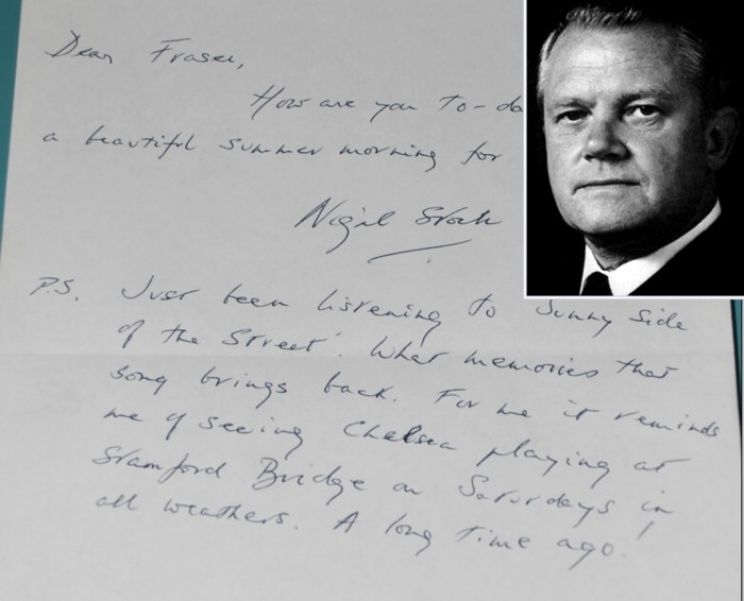 Dear Fraser,
How are you to-da
a beautiful summer morning for
Nigel Stock
P.S. Just been listening to 'Sunny Side
of the Street'. What memories that
song brings back. For me it reminds
me of seeing Chelsea playing at
Stamford Bridge on Saturdays in
all weathers. A long time ago!